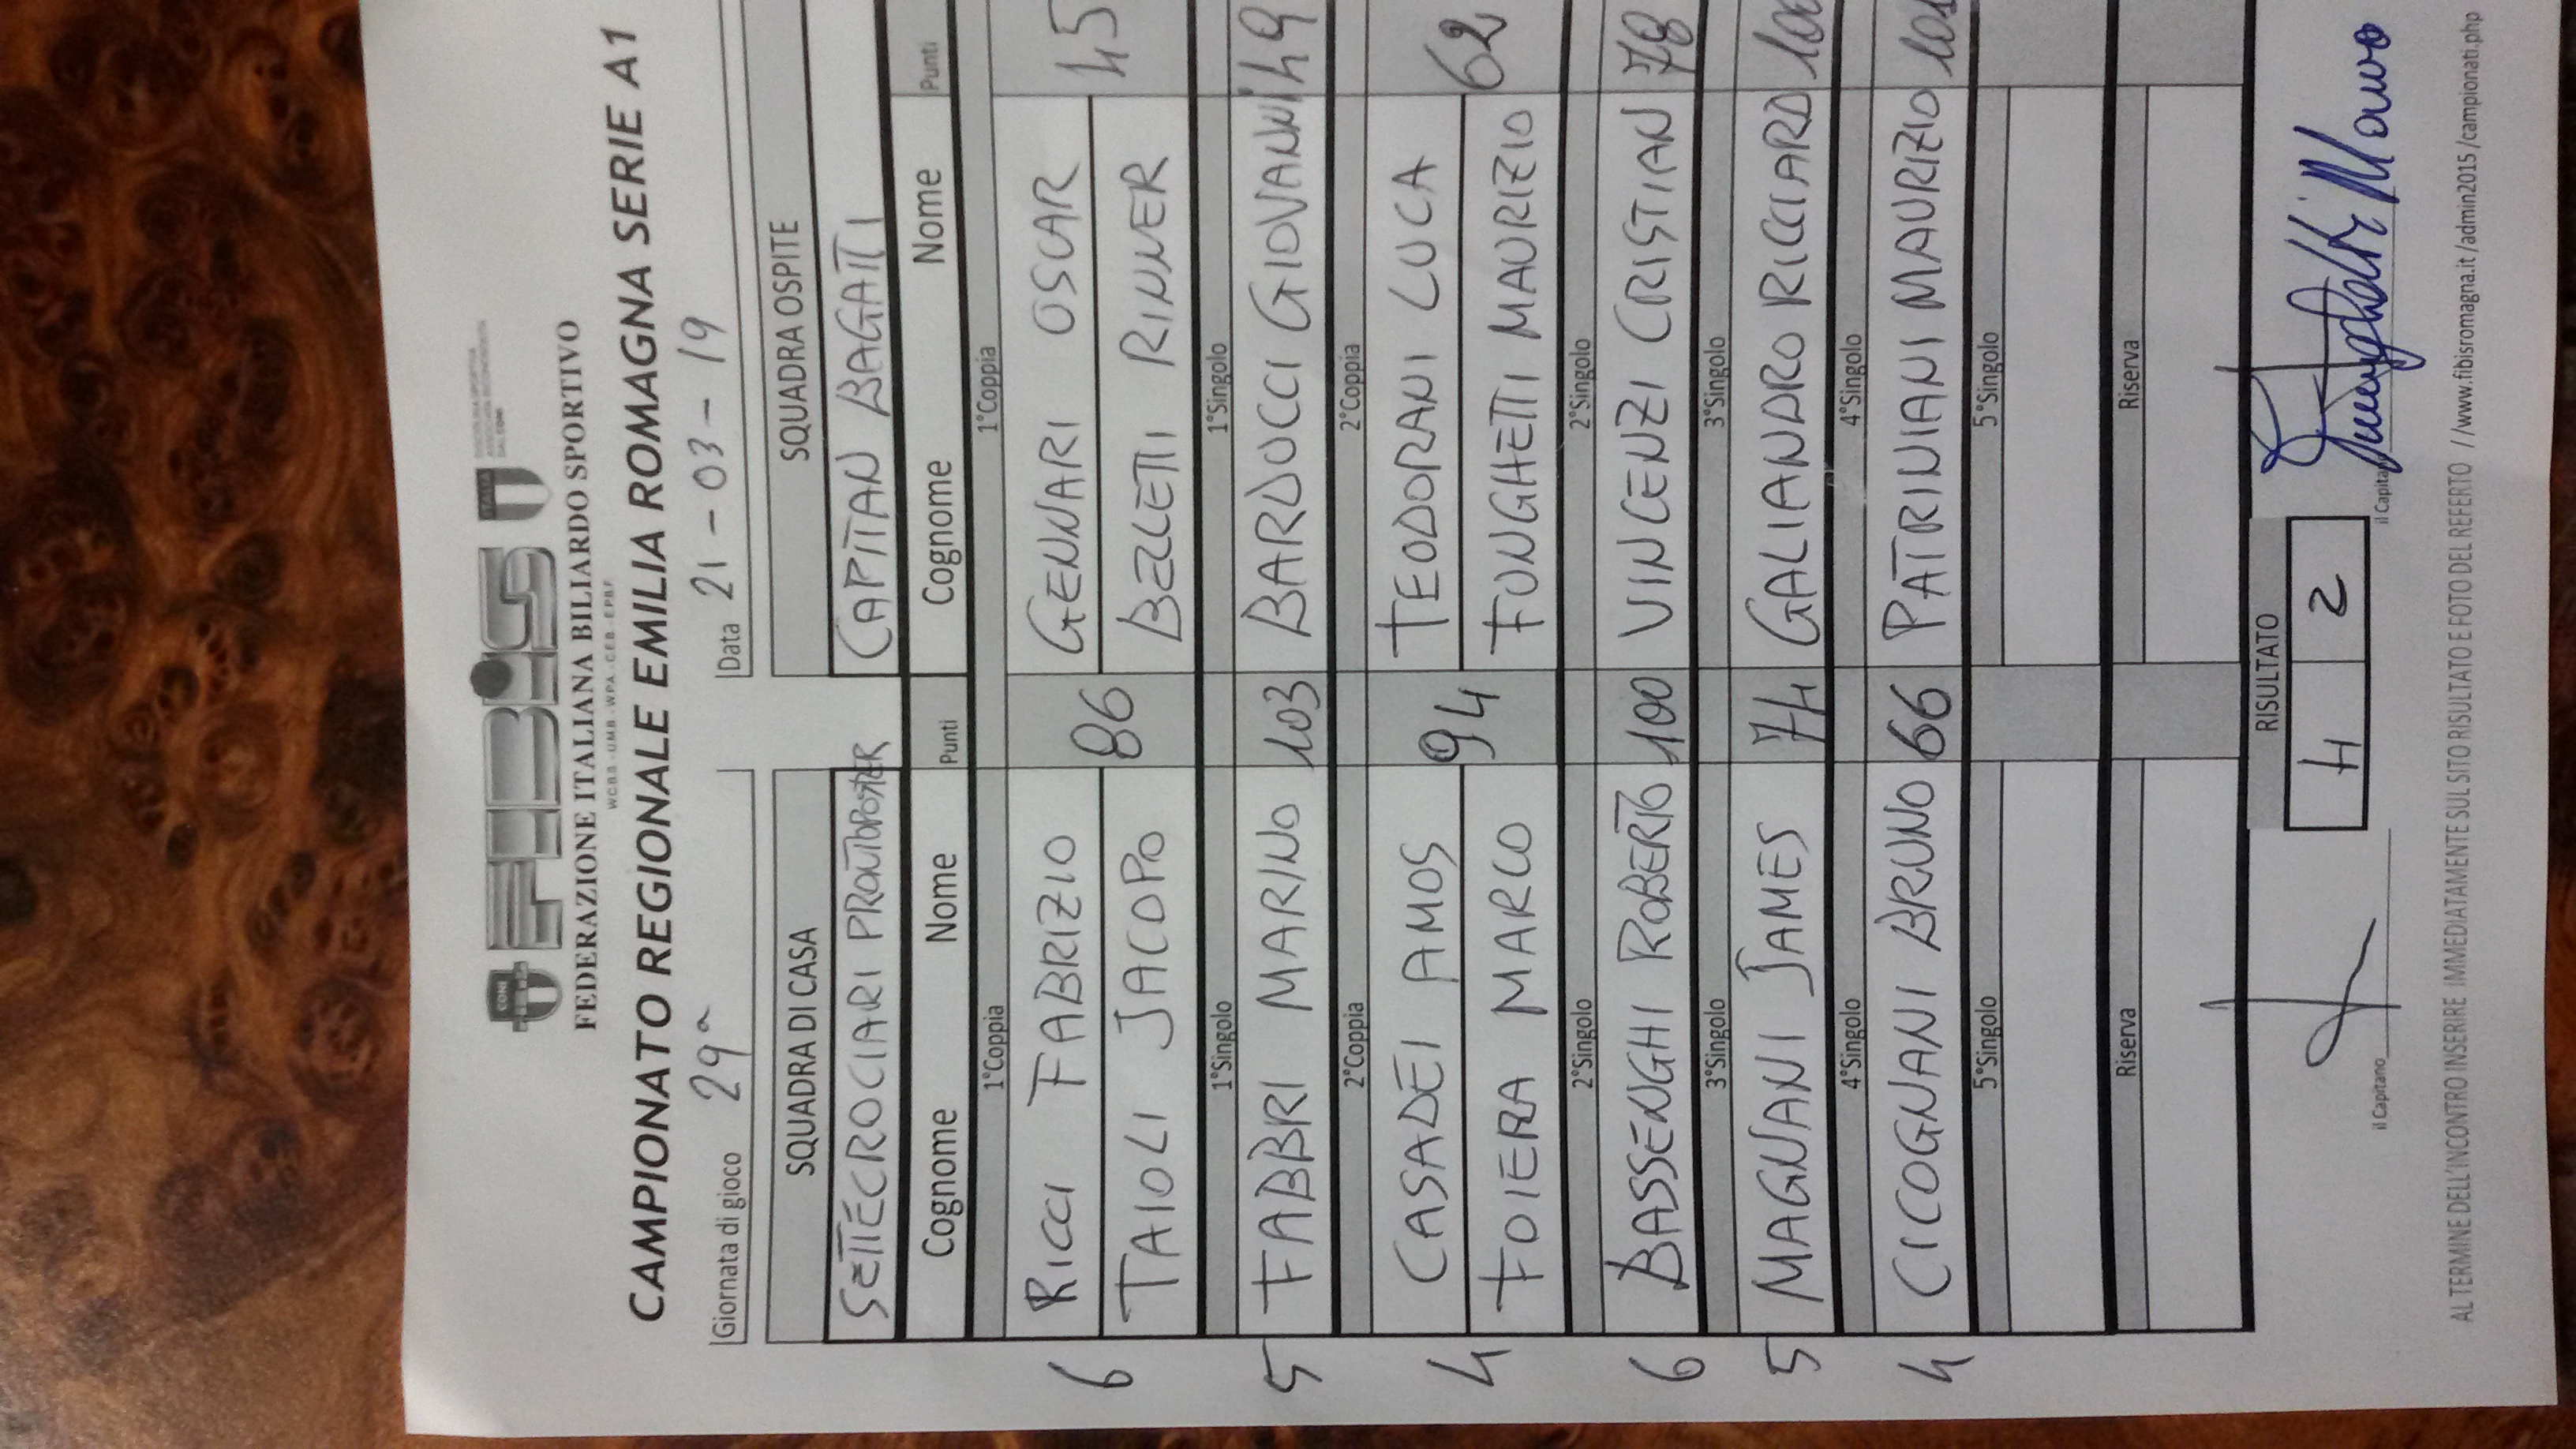 CONI
FIBiS
ITALIA
FEDERAZIONE ITALIANA BILIARDO SPORTIVO
W C B S - U M B - W P A - C E B - E P B F
CAMPIONATO REGIONALE EMILIA ROMAGNA SERIE A1
Giornata di gioco 29a Data 21-03-19
SQUADRA DI CASA SQUADRA OSPITE
SETTECROCIARI CAPITAN BAGATTI
Cognome Nome Punti Cognome Nome Punti
1°Coppia 1°Coppia
6 RICCI FABRIZIO 86 GENNARI OSCAR 45
TAIOLI JACOPO BELLETTI RINNER
1°Singolo 1°Singolo
5 FABBRI MARINO 103 BARDUCCI GIOVANNI 49
2°Coppia 2°Coppia
4 CASADEI AMOS 94 TEODORANI LUCA 62
FOIERA MARCO FUNGHETTI MAURIZIO
2°Singolo 2°Singolo
6 BASSENGHI ROBERTO 100 VINCENZI CRISTIAN 78
3°Singolo 3°Singolo
5 MAGNANI JAMES 74 GALIANDRO RICCIARD
4°Singolo 4°Singolo
4 CICOGNANI BRUNO 66 PATRINIANI MAURIZIO
5°Singolo 5°Singolo
Riserva Riserva
RISULTATO
4 2
il Capitano il Capita
AL TERMINE DELL'INCONTRO INSERIRE IMMEDIATAMENTE SUL SITO RISULTATO E FOTO DEL REFERTO //www.fibisromagna.it/admin2015/campionati.php